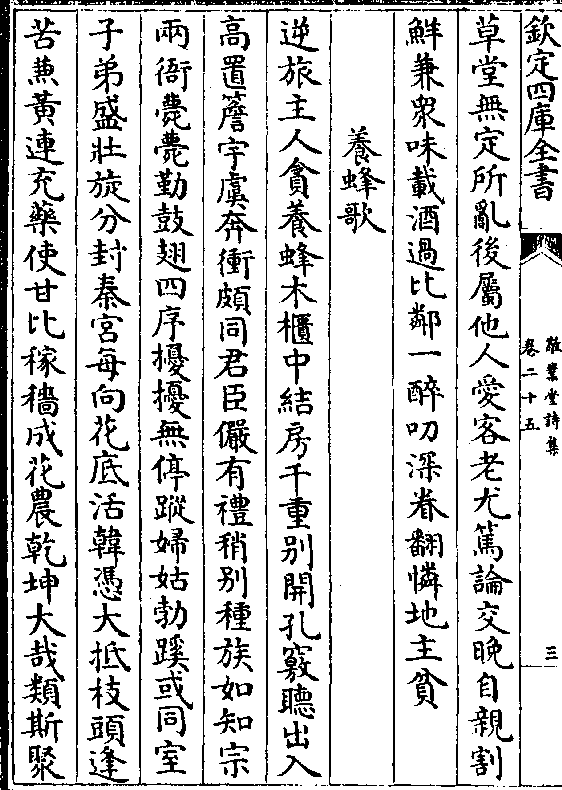 欽定四庫全書
敬業堂詩集
卷二十五
三
草堂無定所亂後屬他人愛客老尤篤論交晚自親割
鮮兼衆味載酒過比鄰一醉叨深眷翻憐地主貧
養蜂歌
逆旅主人貪養蜂木櫃中結房千重别開孔竅聽出入
高置簷宇虞奔衝頗同君臣儼有禮稍别種族如知宗
兩衙薨薨勤鼓翅四序擾擾無停蹤婦姑勃蹊或同室
子弟盛壯旋分封秦宮每向花底活韓憑大抵枝頭逢
苦𠔥黃連充藥使甘比稼穡成花農乾坤大哉類斯聚